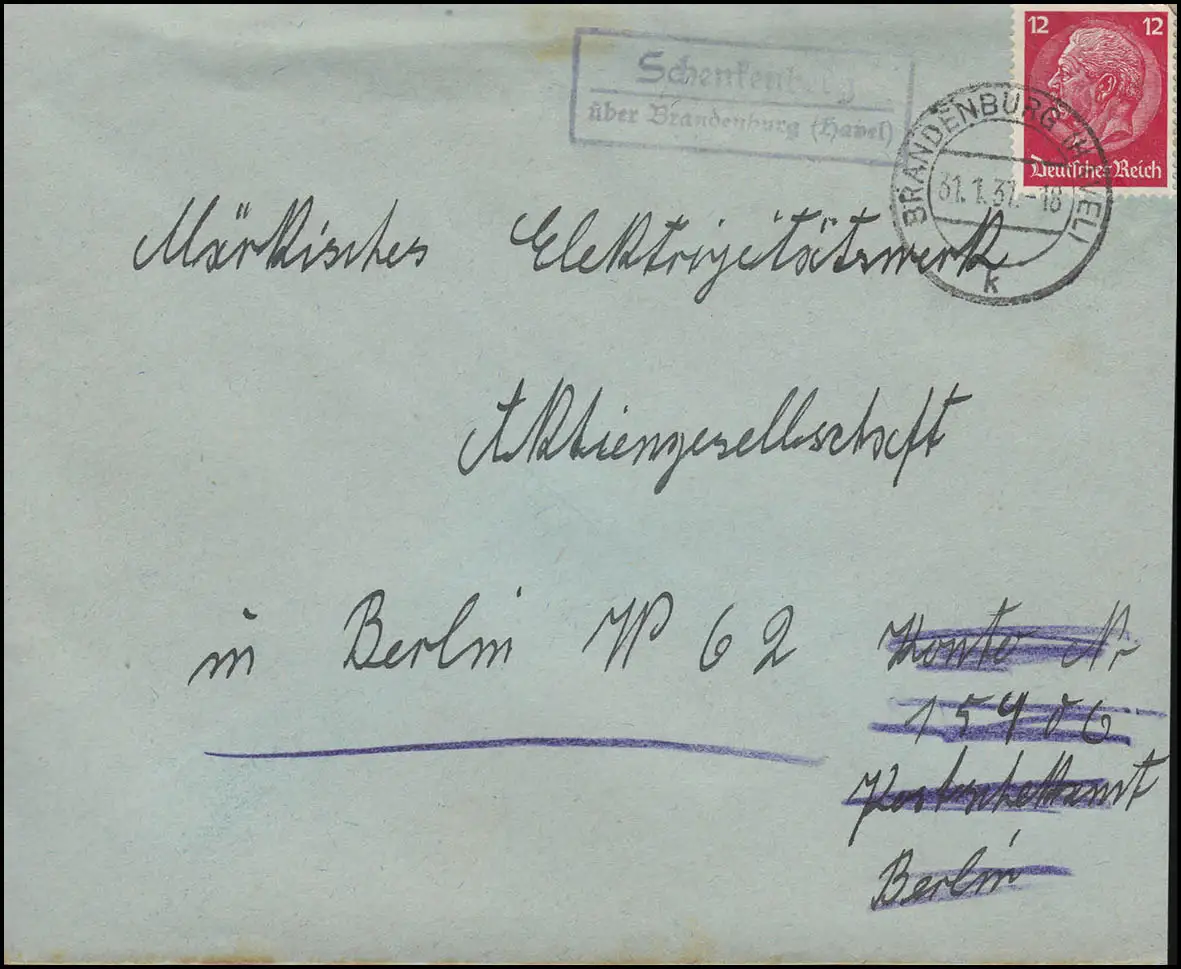 Schenkenberg
über Brandenburg (Havel)
12 12
Deutsches Reich
BRANDENBURG (HAVEL)
31.1.37.-18
k
Märkisches Elektrizitätswerk
Aktiengesellschaft
in Berlin W 62
Konto Nr
15906
Postscheckamt
Berlin